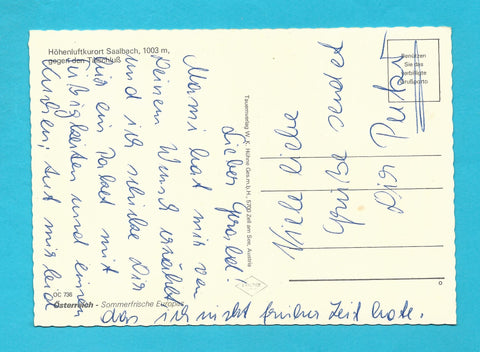 Höhenluftkurort Saalbach, 1003 m,
gegen den Talschluß
Benützen
Sie das
verbilligte
Grußporto
Tauernverlag W. K. Hühne Ges.m.b.H., 5700 Zell am See, Austria
OC 736
Österreich - Sommerfrische Europas
Lieber Gerald!
Mami hat mir von
Deinem Wunsch erzählt
und ich schicke Dir
hier ein Paket mit
und einen
Kuchen; tut mir leid
das ich nicht früher Zeit hatte.
Viele liebe
sendet